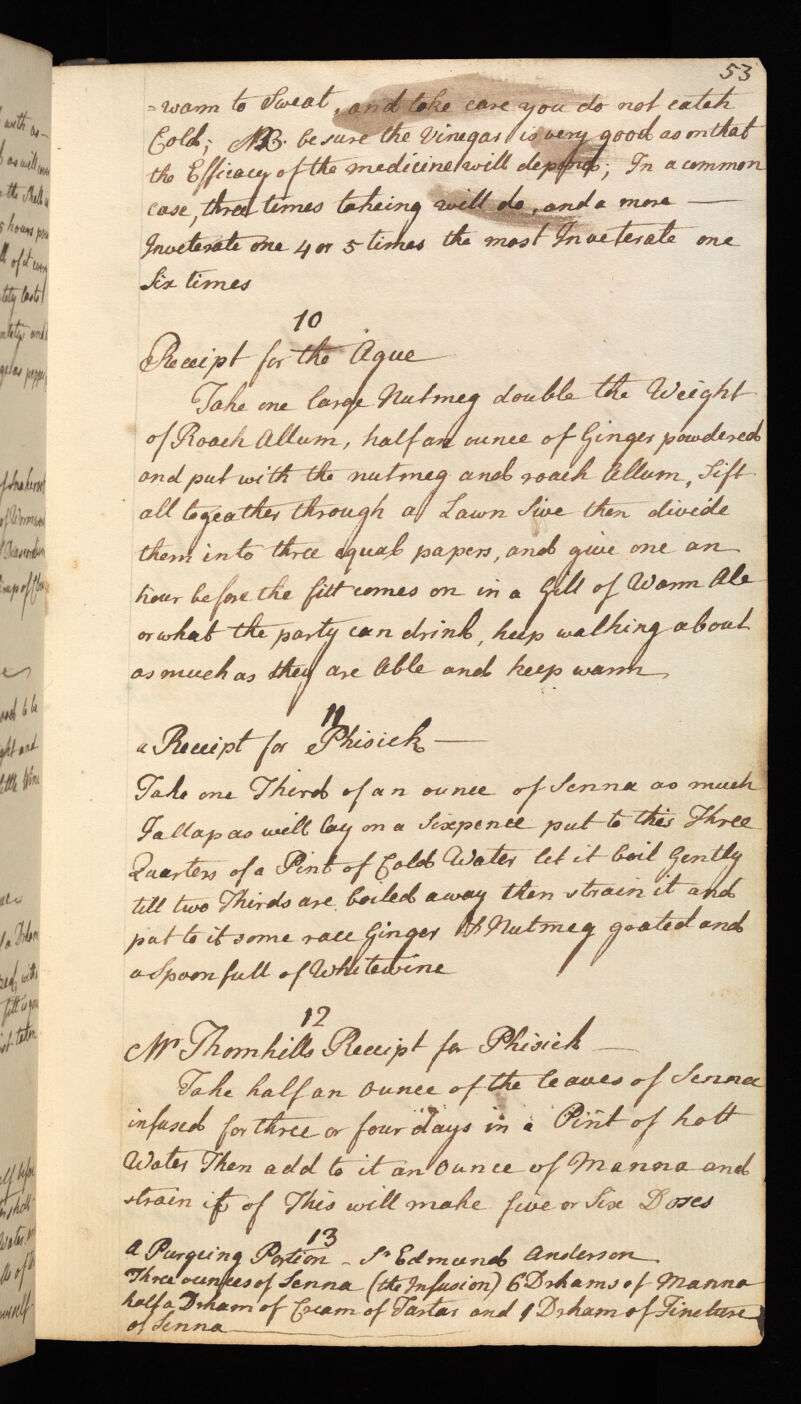 53
=warm to Sweat, and take care you do not catch
Cold; NB. be sure the Vinegar is very good as on that
the Efficacy of the medicine will depend; In a common
case, three times takeing will do, and a more —
Inveterate one 4 or 5 times the most Inveterate one
Six times
10
Receipt for the Ague
Take one large Nutmeg double the Weight
of Roach Allum, half an ounce of Ginger powdered
and put with the nutmeg and roach Allum, Sift
all togeather through a Lawn Sive then divide
them into three equal papers, and give one an
hour before the fitt comes on in a Gill of Warm Ale
or what the party can drink, keep walking about
as much as they are Able and keep warm
11
a Receipt for Phisick —
Take one Third of an ounce of Senna as much
Jallap as will lay on a Sixpence put to this Three
Quarters of a Pint of Cold Water let it boil Gently
till two Thirds are boiled away then strain it and
put to it some race Ginger & Nutmeg grated and
a Spoonfull of Whitewine
12
Mr Thornhills Receipt for Phisick —
Take half an ounce of the leaves of Senna
infused for three or four days in a Pint of hott
Water Then add to it an ounce of Manna and
strain it of This will make five or Six Doses
13
A Purgeing Portion - Sr Edmund Anderson
Three ounces of Senna (the Infusion) 6 Drhams of Manna
half a Drham of Cream of Tartar and 1 Drham of Tincture
of Senna